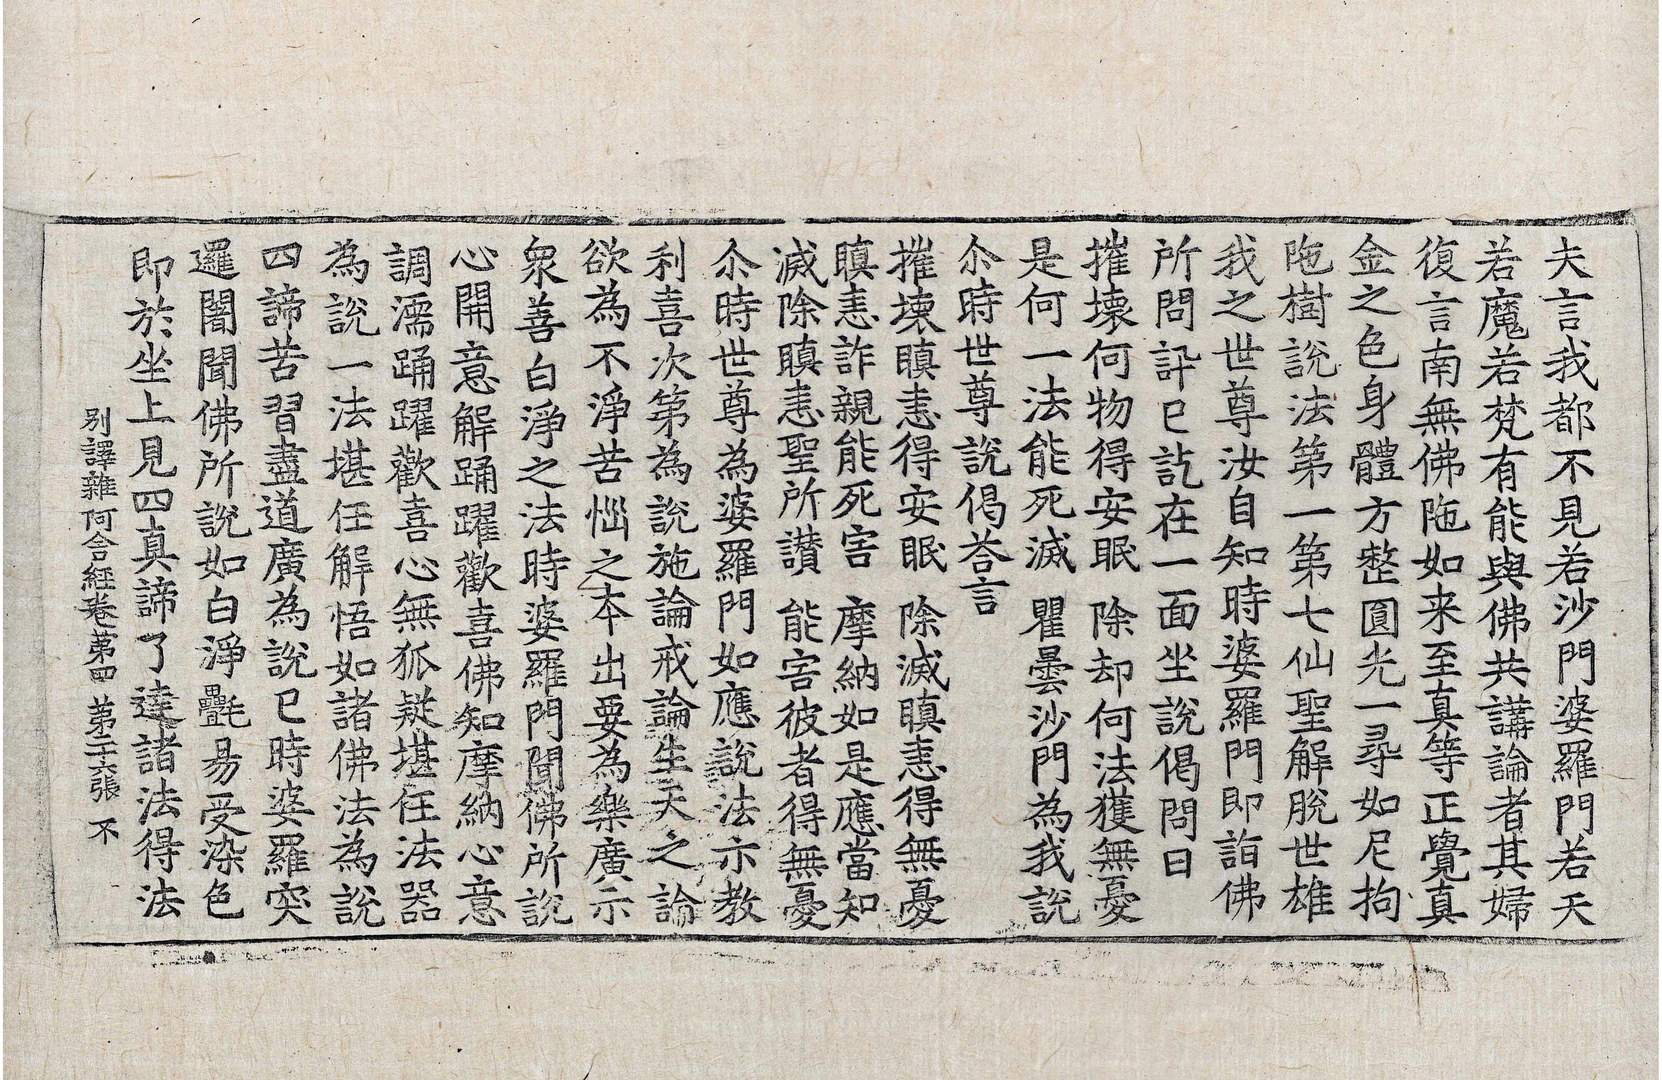 夫言我都不見若沙門婆羅門若天
若魔若梵有能與佛共講論者其婦
復言南無佛陁如来至真等正覺真
金之色身體方整圓光一尋如尼拘
陁樹說法第一第七仙聖解脫世雄
我之世尊汝自知時婆羅門即詣佛
所問訊已訖在一面坐說偈問曰
摧壞何物得安眠 除却何法獲無憂
是何一法能死滅 瞿曇沙門為我說
尒時世尊說偈荅言
摧壞瞋恚得安眠 除滅瞋恚得無憂
瞋恚詐親能死害 摩納如是應當知
滅除瞋恚聖所讃 能害彼者得無憂
尒時世尊為婆羅門如應說法示教
利喜次第為說施論戒論生天之論
欲為不淨苦惱之本出要為樂廣示
衆善白淨之法時婆羅門聞佛所說
心開意解踊躍歡喜佛知摩納心意
調濡踊躍歡喜心無狐疑堪任法器
為說一法堪任解悟如諸佛法為說
四諦苦習盡道廣為說已時婆羅突
邏闍聞佛所說如白淨㲲易受染色
即於坐上見四真諦了達諸法得法
别譯雜阿含經卷第四 第二十六張 不